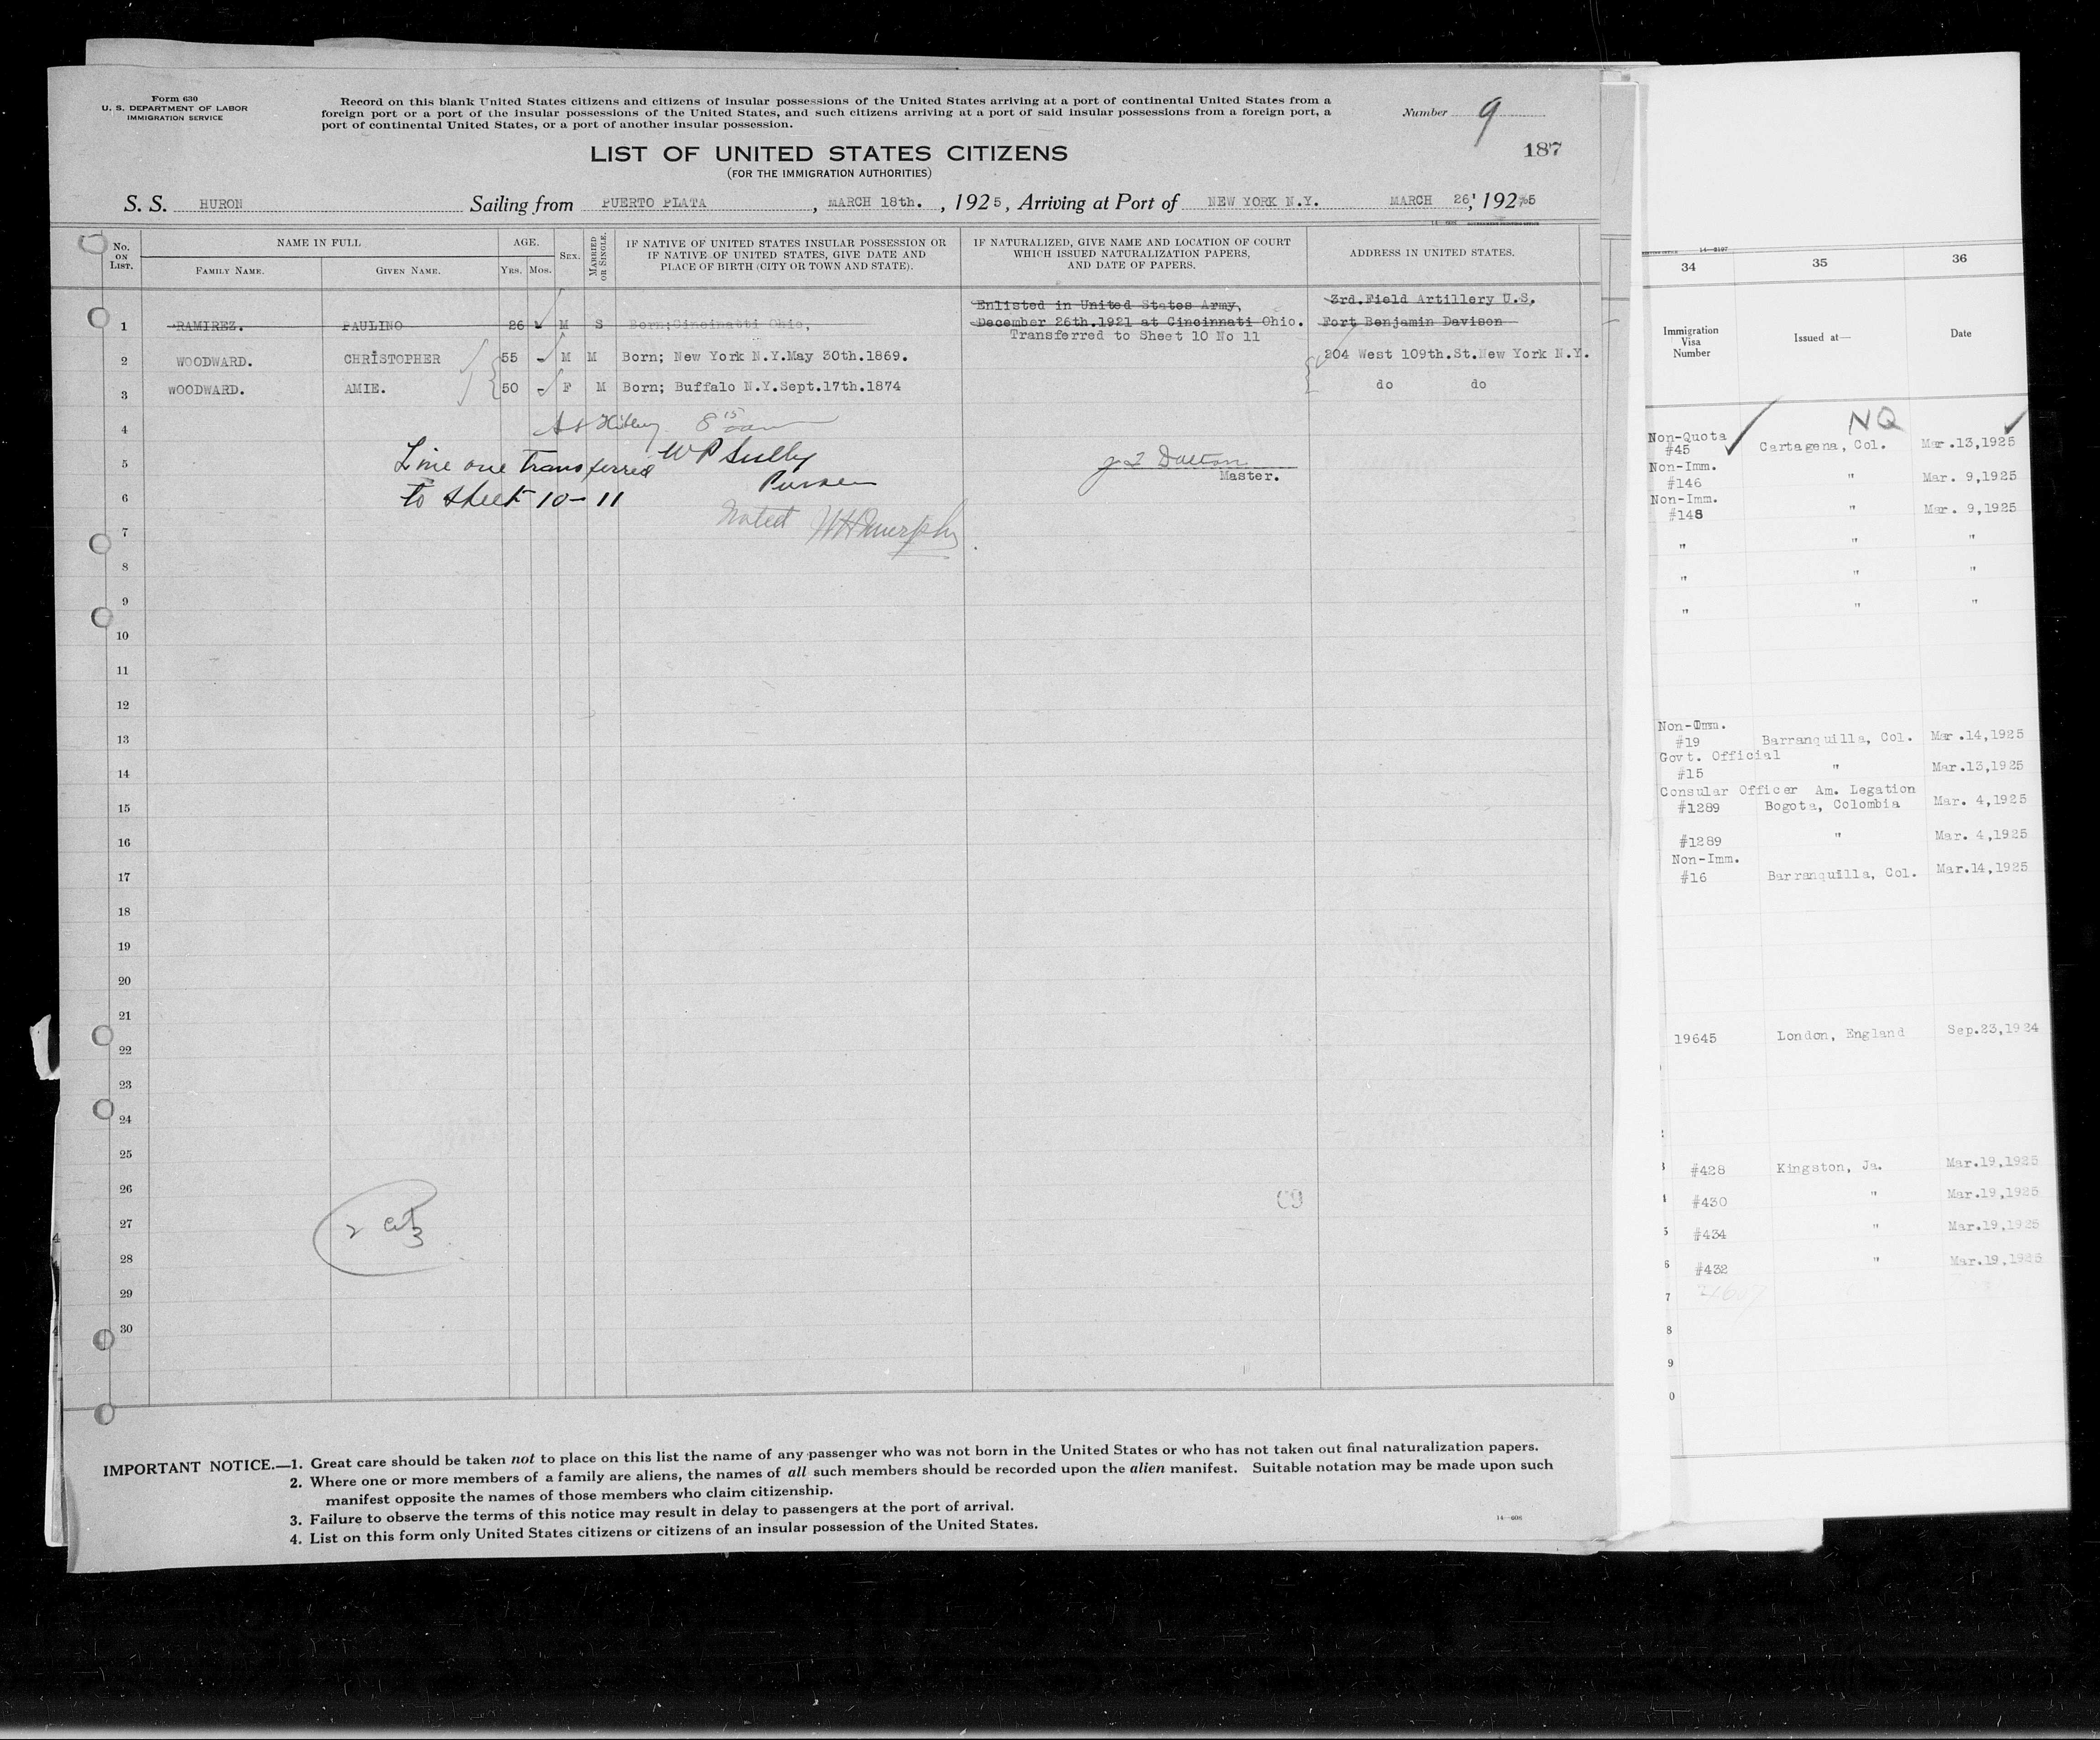 Form 630
U. S. DEPARTMENT OF LABOR
IMMIGRATION SERVICE
Record on this blank United States citizens and citizens of insular possessions of the United States arriving at a port of continental United States from a
foreign port or a port of the insular possessions of the United States, and such citizens arriving at a port of said insular possessions from a foreign port, a
port of continental United States, or a port of another insular possession.
Number 9
187
LIST OF UNITED STATES CITIZENS
(FOR THE IMMIGRATION AUTHORITIES)
S. S. HURON Sailing from PUERTO PLATA, MARCH 18th., 1925, Arriving at Port of NEW YORK N.Y. MARCH 26, 1925
No. ON LIST. NAME IN FULL AGE. SEX. MARRIED OR SINGLE. IF NATIVE OF UNITED STATES INSULAR POSSESSION OR IF NATIVE OF UNITED STATES, GIVE DATE AND PLACE OF BIRTH (CITY OR TOWN AND STATE). IF NATURALIZED, GIVE NAME AND LOCATION OF COURT WHICH ISSUED NATURALIZATION PAPERS, AND DATE OF PAPERS. ADDRESS IN UNITED STATES.
FAMILY NAME. GIVEN NAME. YRS. MOS.
Enlisted in United States Army, 3rd.Field Artillery U.S.
1 RAMIREZ. PAULINO 26 M S Born;Cincinatti Ohio, December 26th.1921 at Cincinnati Ohio. Fort Benjamin Davison
Transferred to Sheet 10 No 11
2 WOODWARD. CHRISTOPHER 55 - M M Born; New York N.Y.May 30th.1869. 204 West 109th.St.New York N.Y.
3 WOODWARD. AMIE. 50 - F M Born; Buffalo N.Y.Sept.17th.1874 do do
4
5 Line one transferred W P Sully J F Dalton
Purser Master.
6 to sheet 10-11
Noted WH Murphy
7
8
9
10
11
12
13
14
15
16
17
18
19
20
21
22
23
24
25
26
27
28
29
30
2 cit
3
C9
IMPORTANT NOTICE.—1. Great care should be taken not to place on this list the name of any passenger who was not born in the United States or who has not taken out final naturalization papers.
2. Where one or more members of a family are aliens, the names of all such members should be recorded upon the alien manifest. Suitable notation may be made upon such
manifest opposite the names of those members who claim citizenship.
3. Failure to observe the terms of this notice may result in delay to passengers at the port of arrival.
4. List on this form only United States citizens or citizens of an insular possession of the United States.
14—608
14—2197
34 35 36
Immigration Visa Number Issued at— Date
NQ
Non-Quota
#45 Cartagena, Col. Mar.13,1925
Non-Imm.
#146 " Mar. 9,1925
Non-Imm.
#148 " Mar. 9,1925
" " "
" " "
" " "
Non-Imm.
#19 Barranquilla, Col. Mar.14,1925
Govt. Official
#15 " Mar.13,1925
Consular Officer Am. Legation
#1289 Bogota, Colombia Mar. 4,1925
#1289 " Mar. 4,1925
Non-Imm.
#16 Barranquilla, Col. Mar.14,1925
19645 London, England Sep.23,1924
#428 Kingston, Ja. Mar.19,1925
#430 " Mar.19,1925
#434 " Mar.19,1925
#432 " Mar.19,1925
7
8
9
0